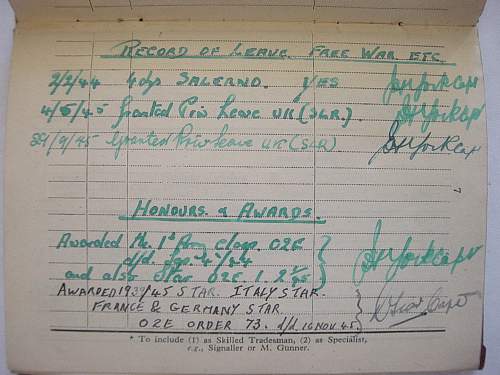 RECORD OF LEAVE, FREE WAR. ETC.
2/2/44 4 dys SALERNO. YES
4/5/45 Granted Priv Leave UK (SLR.)
29/9/45 Granted Priv Leave UK (SLR)
7
HONOURS. & AWARDS.
Awarded the 1st Army clasp O2E
and also Star O2E 1.
AWARDED 1939/45 STAR. ITALY STAR.
FRANCE & GERMANY STAR
O2E ORDER 73. d/d. 16 NOV. 45.
* To include (1) as Skilled Tradesman, (2) as Specialist,
e.g., Signaller or M. Gunner.